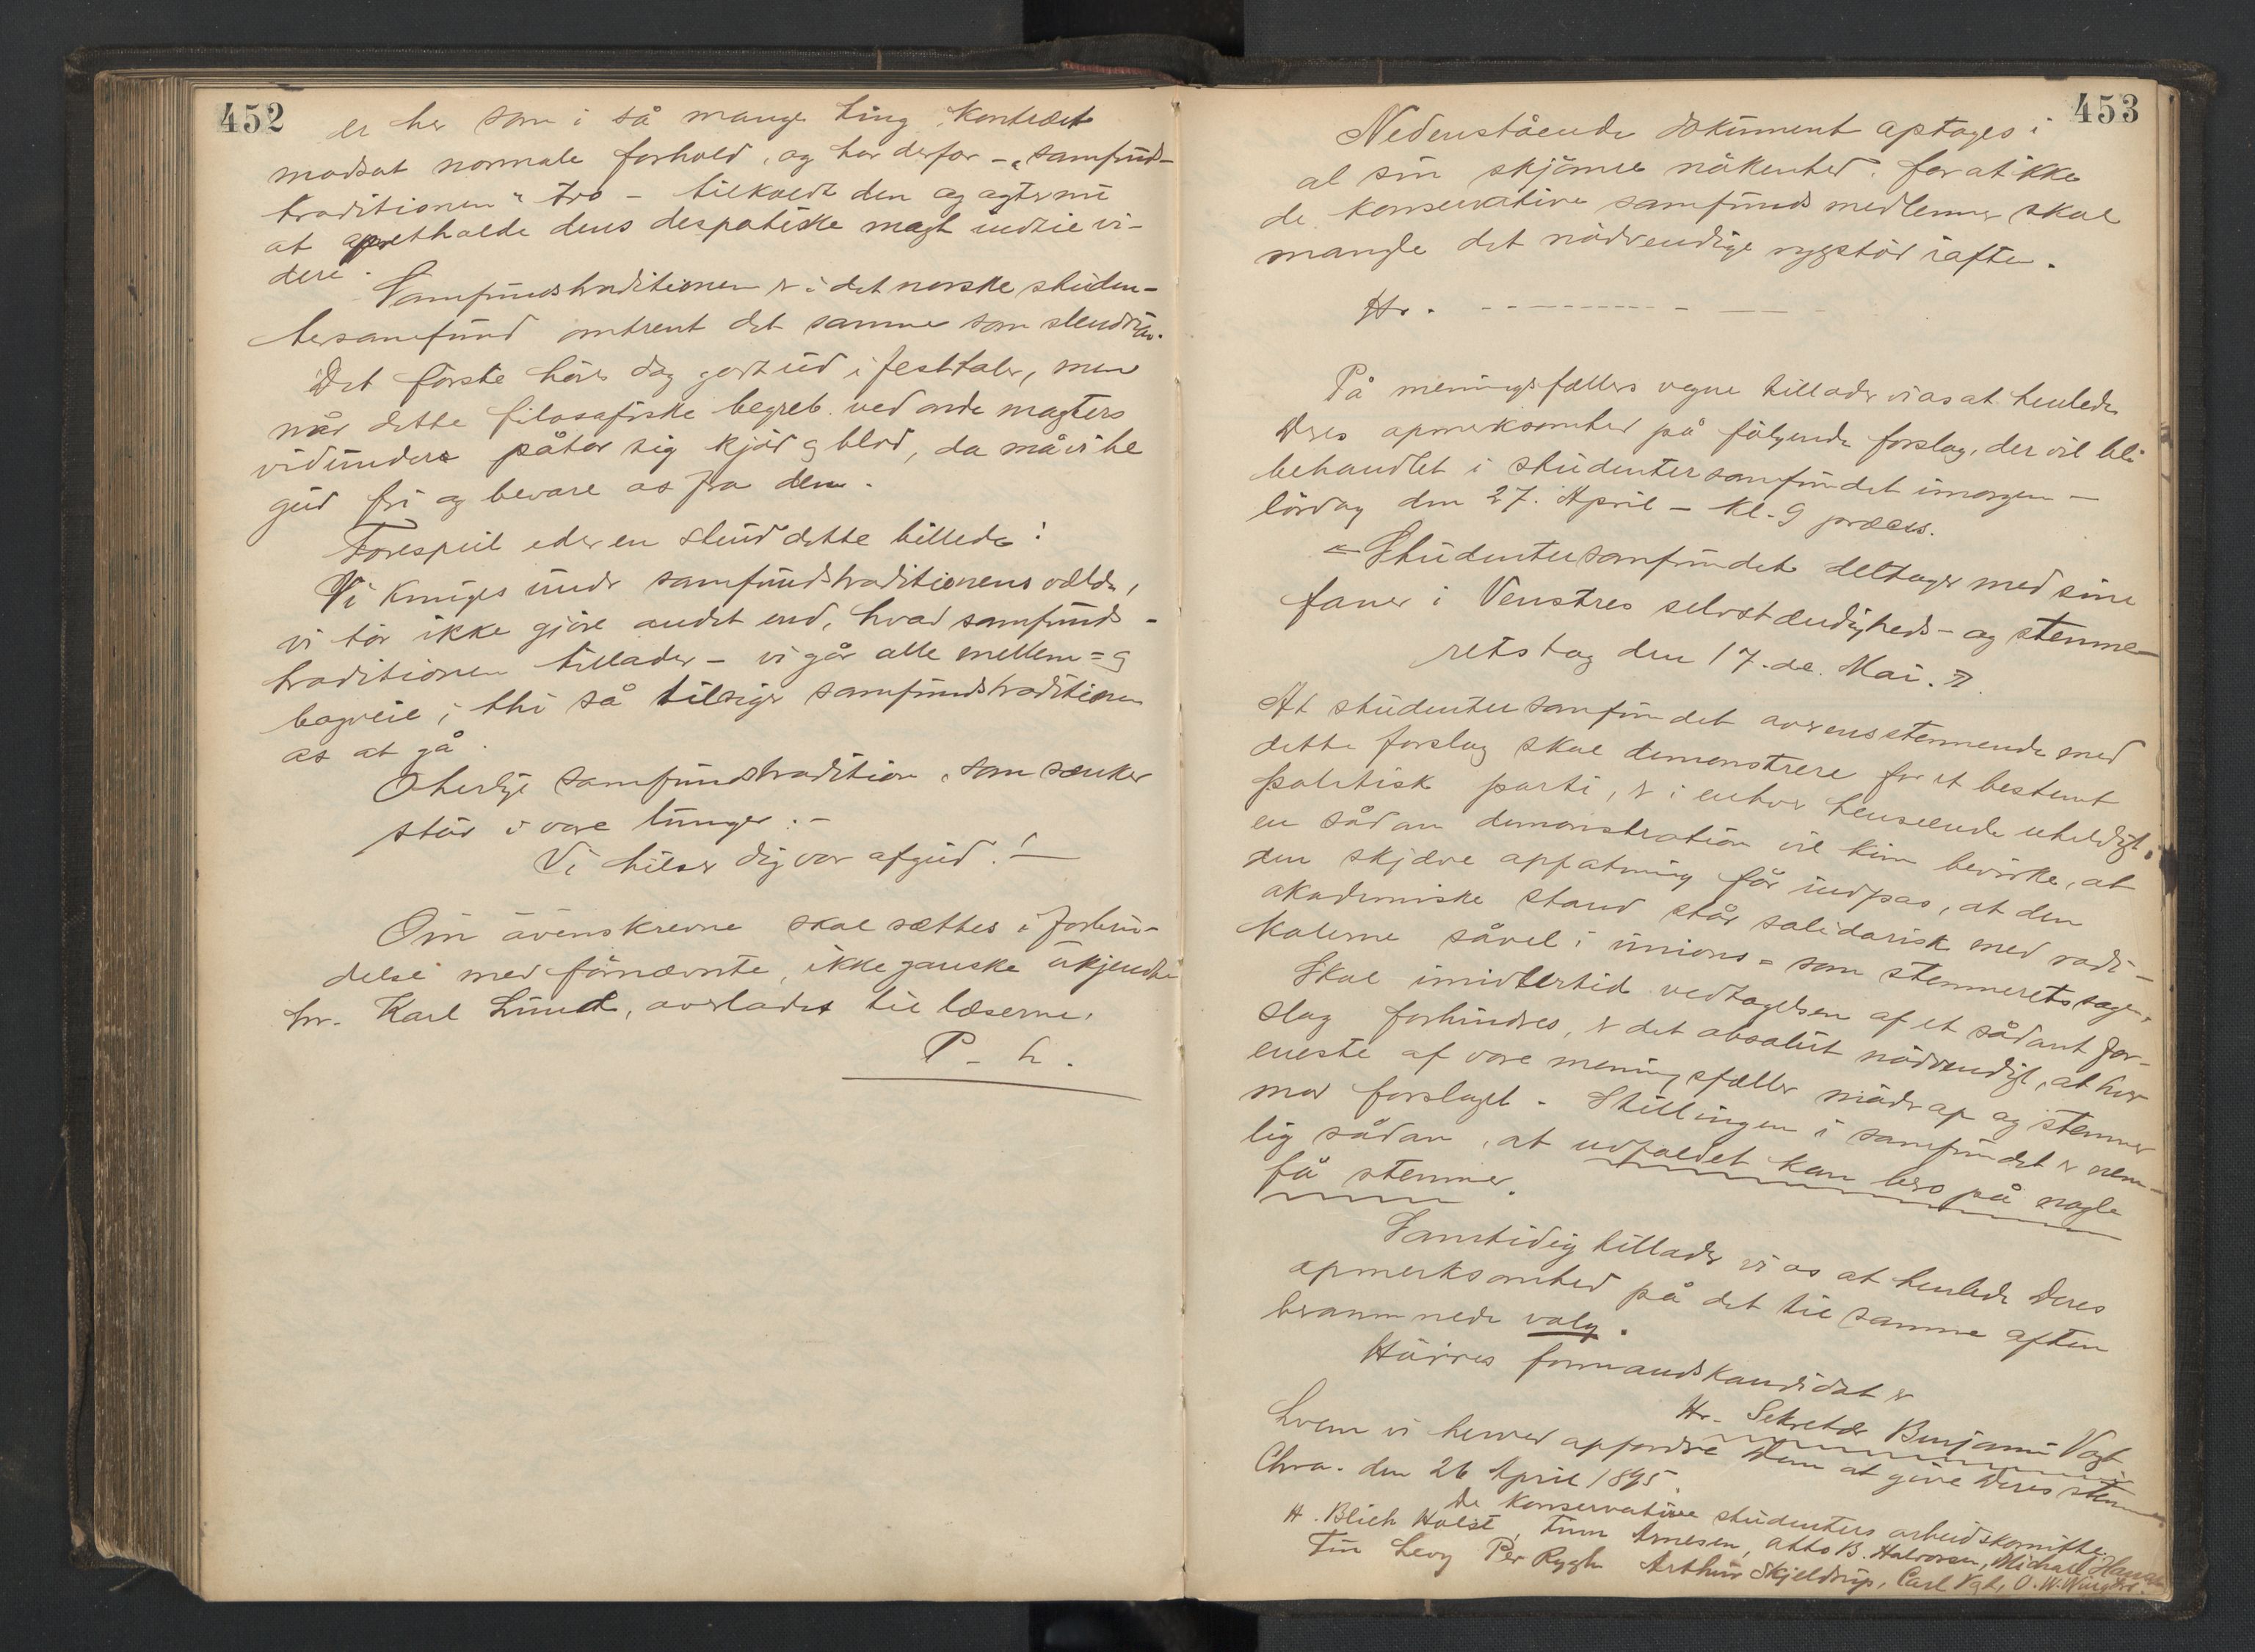 452
er her som i så mange ting kontræet
modsat normale forhold, og har derfor – „samfunds-
traditionen“ tro – tilkaldt den og agter nu
at opretholde dens despotiske magt indtil vi-
dere.
Samfundstraditionen er i det norske studen-
tersamfund omtrent det samme som slendrian.
Det første høres dog godt ud i festtaler, men
når dette filosofiske begreb ved onde magters
vidunder påtar sig kjød og blod, da må vi be
gud fri og bevare os fra den.
Forespeil eder en stund dette billede:
Vi knuges under samfundstraditionens vælde,
vi tør ikke gjøre andet end, hvad samfunds-
traditionen tillader – vi går alle mellem= og
bagveie; thi så tilsiger samfundstraditionen
os at gå.
O herlige samfundstradition, som sænker
støv i vore lunger. –
Vi hilser dig vor afgud! –
Om ovenskrevne skal sættes i forbin-
delse med førnævnte, ikke ganske ukjendte
hr. Karl Lund, overlades til læserne.
P– h.
453
Nedenstående dokument optages i
al sin skjønne nøkenhed, for at ikke
de konservative samfundsmedlemmer skal
mangle det nødvendige rygstød iaften.
Hr. - - - - - - - - - -
På meningsfællers vegne tillader vi os at henlede
Deres opmerksomhed på følgende forslag, der vil bli
behandlet i studentersamfundet imorgen –
lørdag den 27. April – kl. 9 præcis.
„Studentersamfundet deltager med sine
faner i Venstres selvstændigheds- og stemme-
retstog den 17. de. Mai.“
At studentersamfundet overensstemmende med
dette forslag skal demonstrere for et bestemt
politisk parti, er i enhver henseende uheldigt;
en sådan demonstration vil kun bevirke, at
den skjæve opfatning får indpas, at den
akademiske stand står solidarisk med radi-
kalerne såvel i unions= som stemmeretssagen.
Skal imidlertid vedtagelsen af et sådant for-
slag forhindres, er det absolut nødvendigt, at hver
eneste af vore meningsfæller møder op og stemmer
mod forslaget. Stillingen i samfundet er nem-
lig sådan, at udfaldet kan bero på nogle
få stemmer.
Samtidig tillader vi os at henlede Deres
opmerksomhed på det til samme aften
berammede valg.
Høires formandskandidat er
Hr. Sekretær Benjamin Vogt
hvem vi herved opfordre Dem at give Deres stemme.
Chra. den 26 April 1895.
De konservative studenters arbeidskomite.
H. Blich Holst, Finn Arnesen, Otto B. Halvorsen, Michael Hansen
Finn Levy Per Rygh Arthur Skjeldrup, Carl Vogt, O. W.